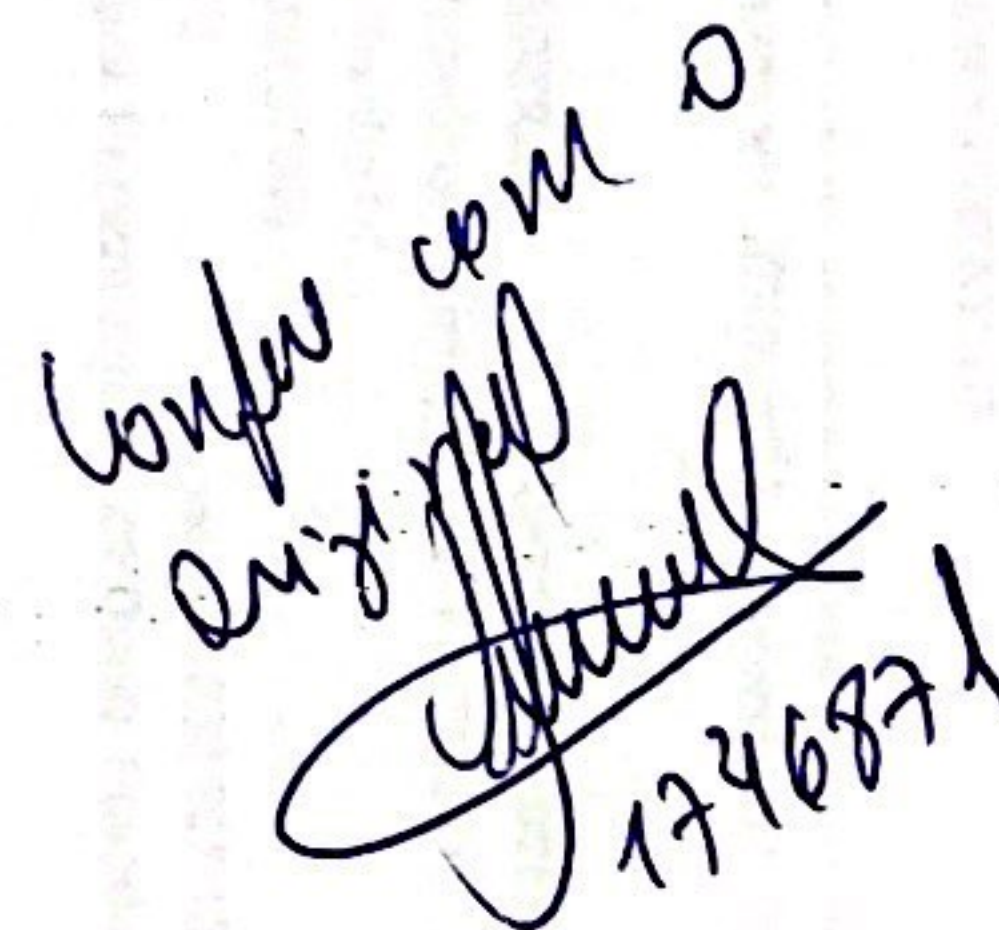 Confere com o
original
1746871